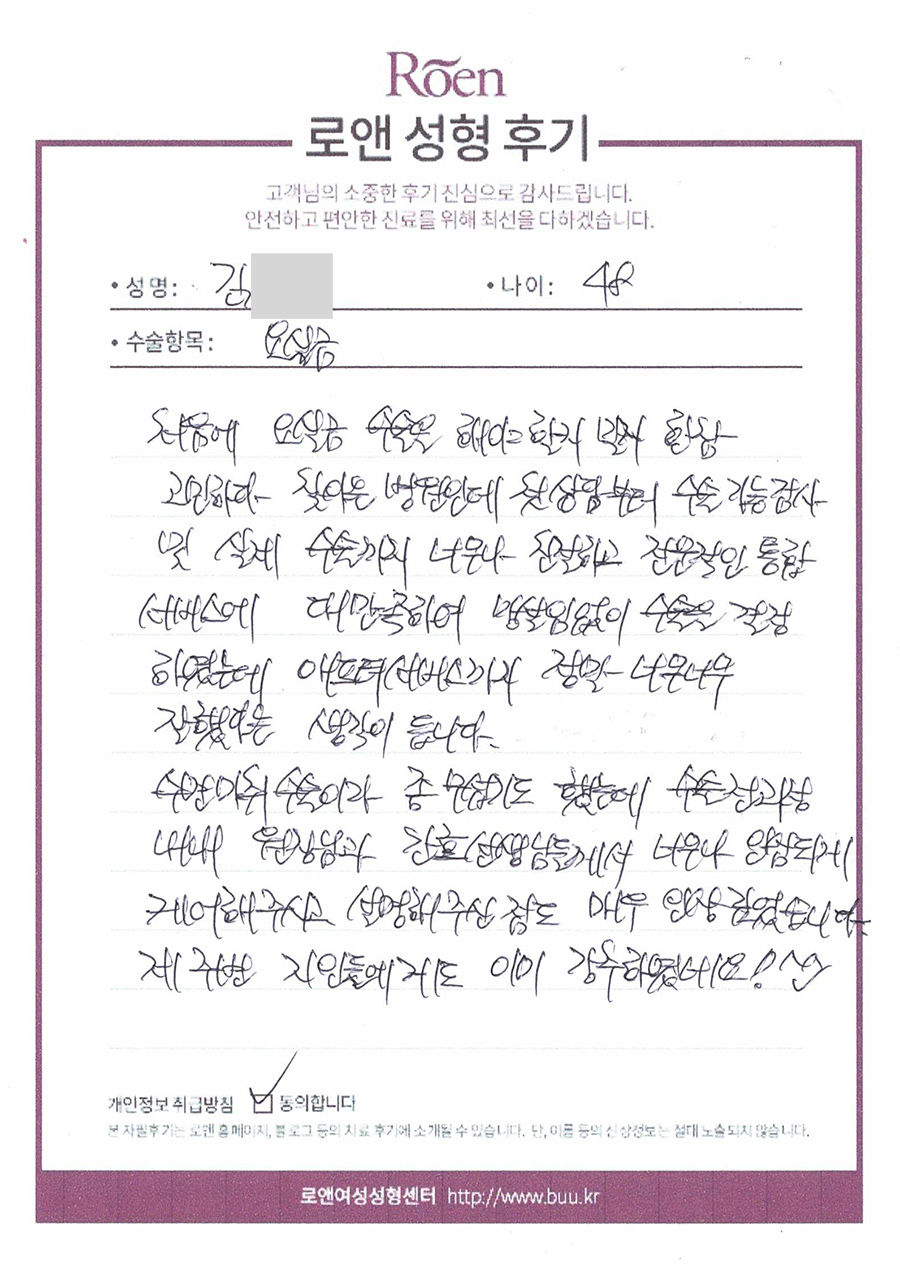 Rõen
로앤 성형 후기
고객님의 소중한 후기 진심으로 감사드립니다.
안전하고 편안한 진료를 위해 최선을 다하겠습니다.
• 성명: 김
• 나이: 48
• 수술항목: 요실금
처음에 요실금 수술을 해야할지 말지 한참
고민하다 찾아온 병원인데 첫 상담부터 수술 기능검사
및 실제 수술까지 너무나 친절하고 전문적인 통합
서비스에 대만족하여 망설임없이 수술을 결정
하였는데 애프터서비스까지 정말 너무너무
잘했다는 생각이 듭니다.
수면마취 수술이라 좀 무섭기도 했는데 수술전과정
내내 원장님과 간호선생님들께서 너무나 안심되게
케어해주시고 설명해주신 점도 매우 인상 깊었습니다.
제 주변 지인들에게도 이미 강추하였네요!
개인정보 취급방침 동의합니다
본 자필후기는 로앤 홈페이지, 블로그 등의 치료 후기에 소개될 수 있습니다. 단, 이름 등의 신상정보는 절대 노출되지 않습니다.
로앤여성성형센터 http://www.buu.kr